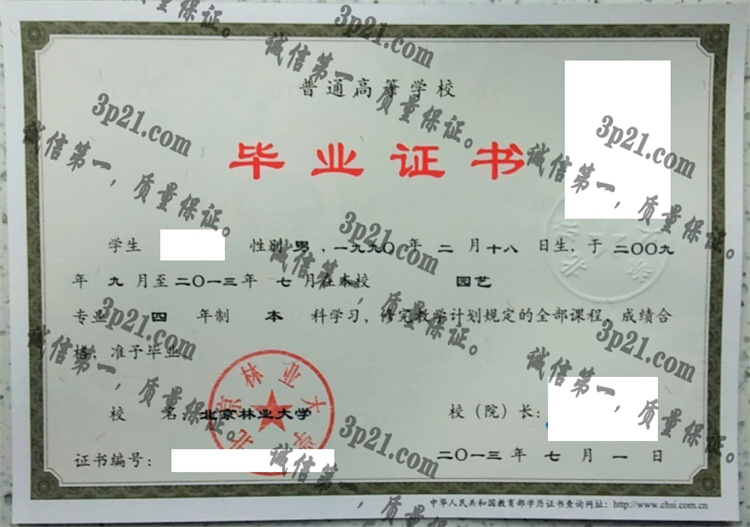 普通高等学校
毕业证书
学生 性别 男，一九九〇年 二 月十八 日生，于 二〇〇九
年 九 月至二〇一三年 七 月在本校 园艺
专业 四 年制 本 科学习，修完教学计划规定的全部课程，成绩合
格，准予毕业。
校 名：北京林业大学 校（院）长：
证书编号： 二〇一三年 七 月 一 日
中华人民共和国教育部学历证书查询网址：http://www.chsi.com.cn
北京林业大学
3p21.com
诚信第一，质量保证。
3p21.com
诚信第一，质量保证。
3p21.com
诚信第一，质量保证。
3p21.com
诚信第一，质量保证。
3p21.com
诚信第一，质量保证。
3p21.com
诚信第一，质量保证。
3p21.com
诚信第一，质量保证。
3p21.com
诚信第一，质量保证。